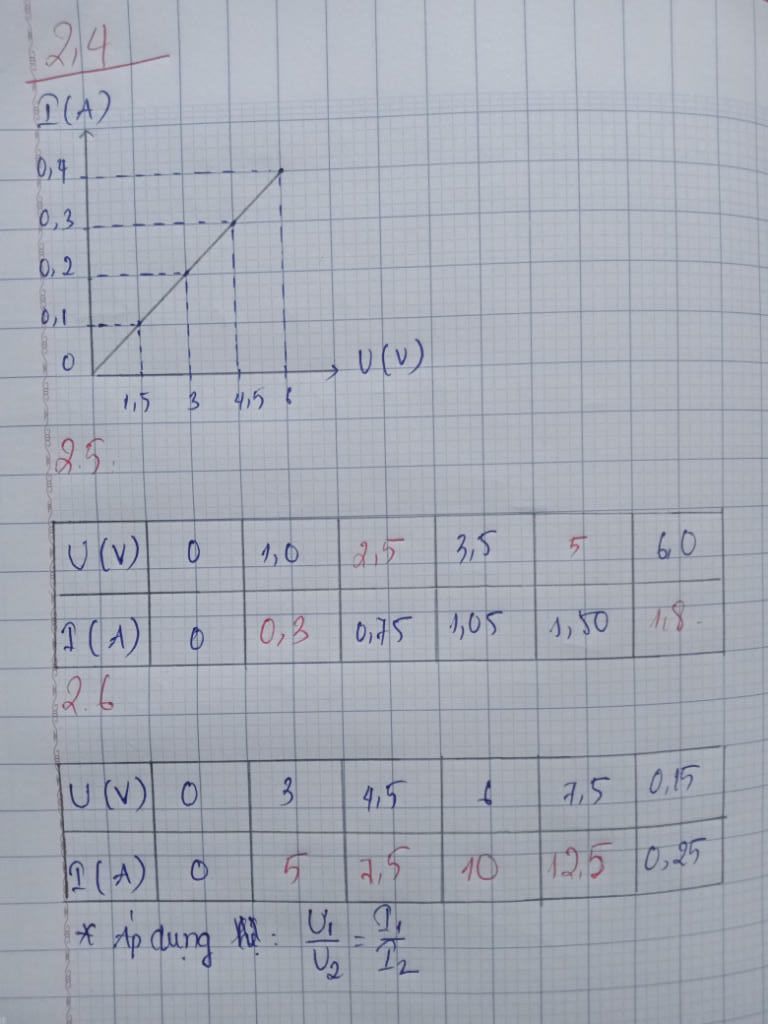 2,4
I(A)
0,4
0,3
0,2
0,1
0
U(V)
1,5 3 4,5 6
2.5.
U(V) 0 1,0 2,5 3,5 5 6,0
I(A) 0 0,3 0,75 1,05 1,50 1,8.
2.6
U(V) 0 3 4,5 6 7,5 0,15
I(A) 0 5 7,5 10 12,5 0,25
* Áp dụng : U₁/U₂ = I₁/I₂